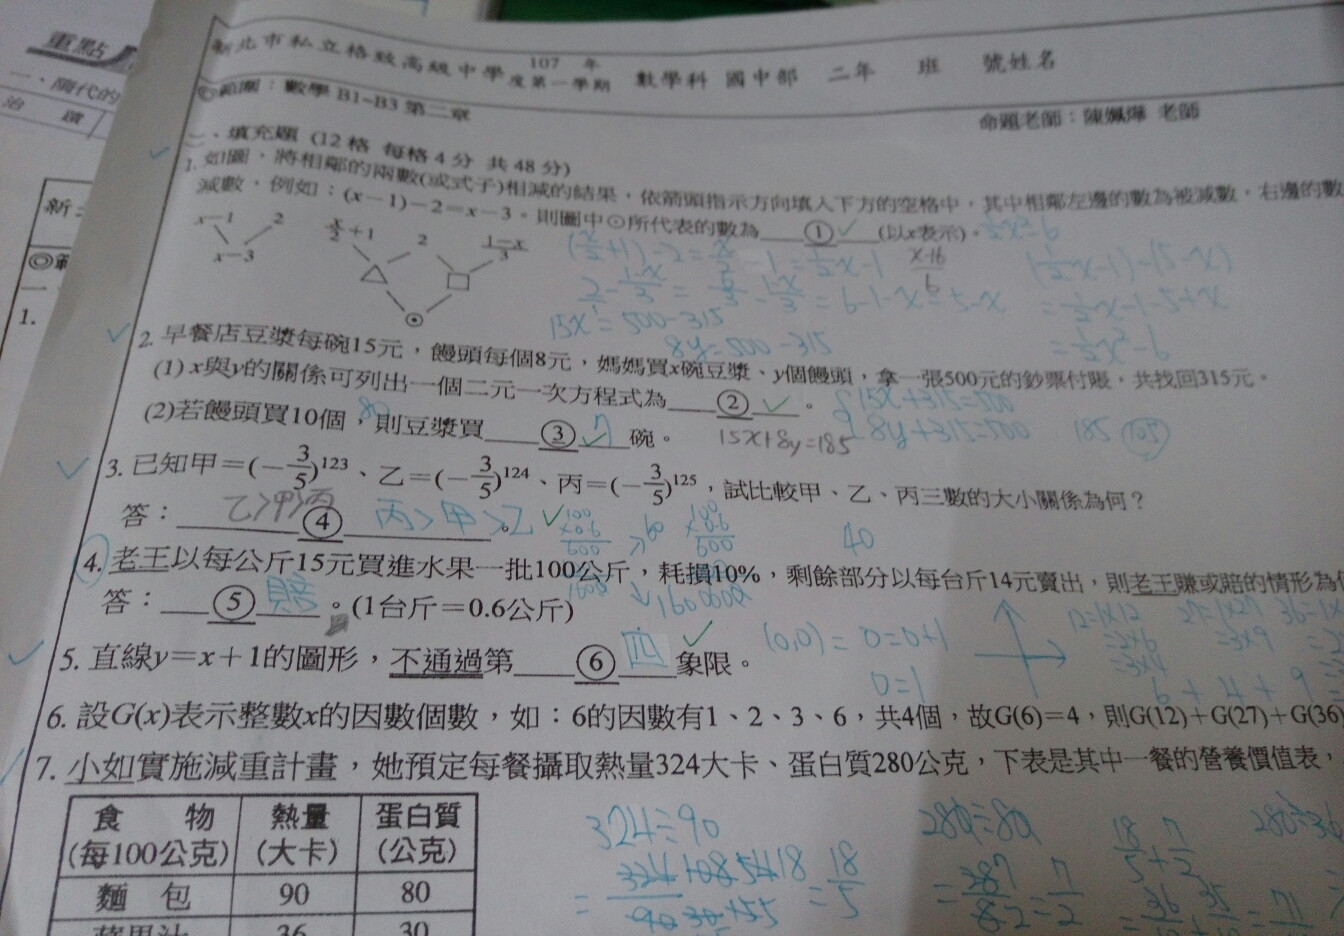 重點
一、隋代的
治 績
新
◎範
一
1.
新北市私立格致高級中學 107 年度第一學期 數學科 國中部 二年 班 號姓名
◎範圍：數學 B1~B3 第二章
命題老師：陳姵燁 老師
二、填充題 (12 格 每格 4 分 共 48 分)
1. 如圖，將相鄰的兩數(或式子)相減的結果，依箭頭指示方向填入下方的空格中，其中相鄰左邊的數為被減數，右邊的數
減數，例如：(x－1)－2＝x－3。則圖中⊙所代表的數為____①____(以x表示)。
x－1 2 x/2＋1 2 (1－x)/3
x－3 △ □
⊙
(x/2+1)-2= 
(x-16)/6
(1/2x-1)-(5-x)
=1/2x-1-5+x
15x=500-315
8y=500-315
2. 早餐店豆漿每碗15元，饅頭每個8元，媽媽買x碗豆漿、y個饅頭，拿一張500元的鈔票付賬，共找回315元。
(1) x與y的關係可列出一個二元一次方程式為____②____。
15x+315=500
(2)若饅頭買10個，則豆漿買____③____碗。
80
7
15x+8y=185
8y+315=500
185
105
3. 已知甲＝(－3/5)^123、乙＝(－3/5)^124、丙＝(－3/5)^125，試比較甲、乙、丙三數的大小關係為何？
答：____④____。
乙>甲>丙
丙>甲>乙
40
4. 老王以每公斤15元買進水果一批100公斤，耗損10%，剩餘部分以每台斤14元賣出，則老王賺或賠的情形為
答：____⑤____。(1台斤＝0.6公斤)
賠
5. 直線y＝x＋1的圖形，不通過第____⑥____象限。
四
(0,0)= 0=0+1
0=1
12=1x12
=2x6
=3x4
27=1x27
=3x9
6+4+9
6. 設G(x)表示整數x的因數個數，如：6的因數有1、2、3、6，共4個，故G(6)＝4，則G(12)＋G(27)＋G(36)
7. 小如實施減重計畫，她預定每餐攝取熱量324大卡、蛋白質280公克，下表是其中一餐的營養價值表，
食 物 (每100公克) 熱量 (大卡) 蛋白質 (公克)
麵 包 90 80
蘋果汁 36 30
324÷90
=18/5
280÷80
=7/2
18/5+7/2